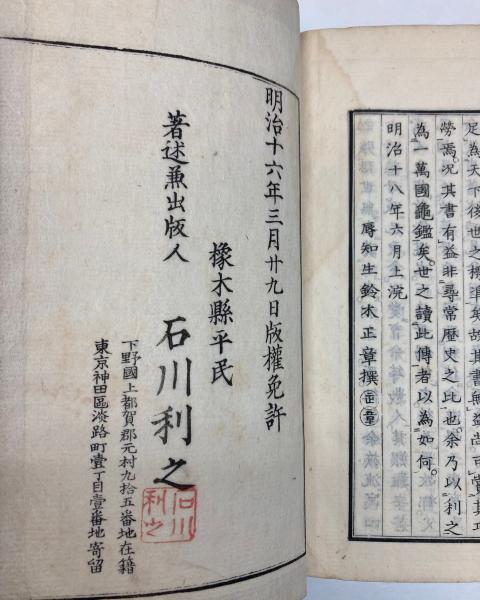 足爲天下後世之標準矣故其書無益尚可賞其功
勞焉況其書有益非尋常歴史之比也余乃以利之
爲一萬國龜鑑矣世之讀此傳者以爲如何
明治十八年六月上浣　辱知生鈴木正章撰
明治十六年三月廿九日版權免許
橡木縣平民
著述兼出版人　石川利之
下野國上都賀郡元村九拾五番地在籍
東京神田區淡路町壹丁目壹番地寄留
石川
利之